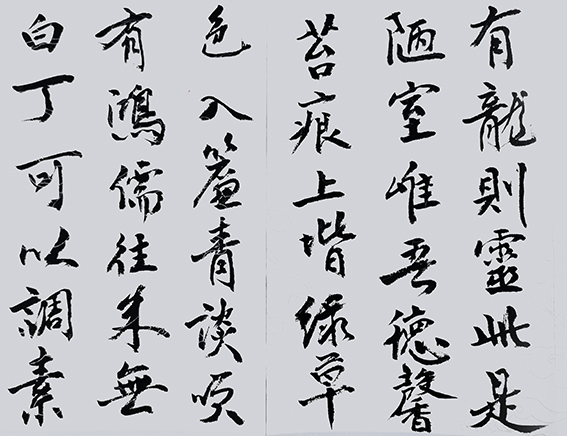 有龍則靈此是
陋室唯吾德馨
苔痕上堦綠草
色入簾青談咲
有鴻儒往来無
白丁可以調素